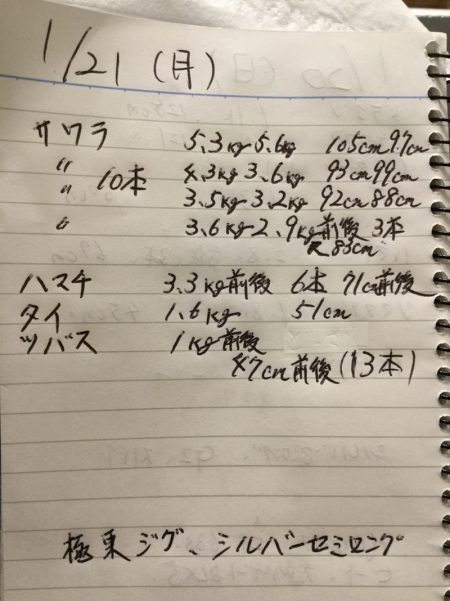 1/21 (月)
サワラ 5.3kg 5.6kg 105cm 97cm
〃 10本 4.3kg 3.6kg 93cm 99cm
〃 3.5kg 3.2kg 92cm 88cm
〃 3.6kg 2.9kg前後 3本
83cm
ハマチ 3.3kg前後 6本 71cm前後
タイ 1.6kg 51cm
ツバス 1kg前後
47cm前後 (13本)
極東ジグ、シルバーセミロング